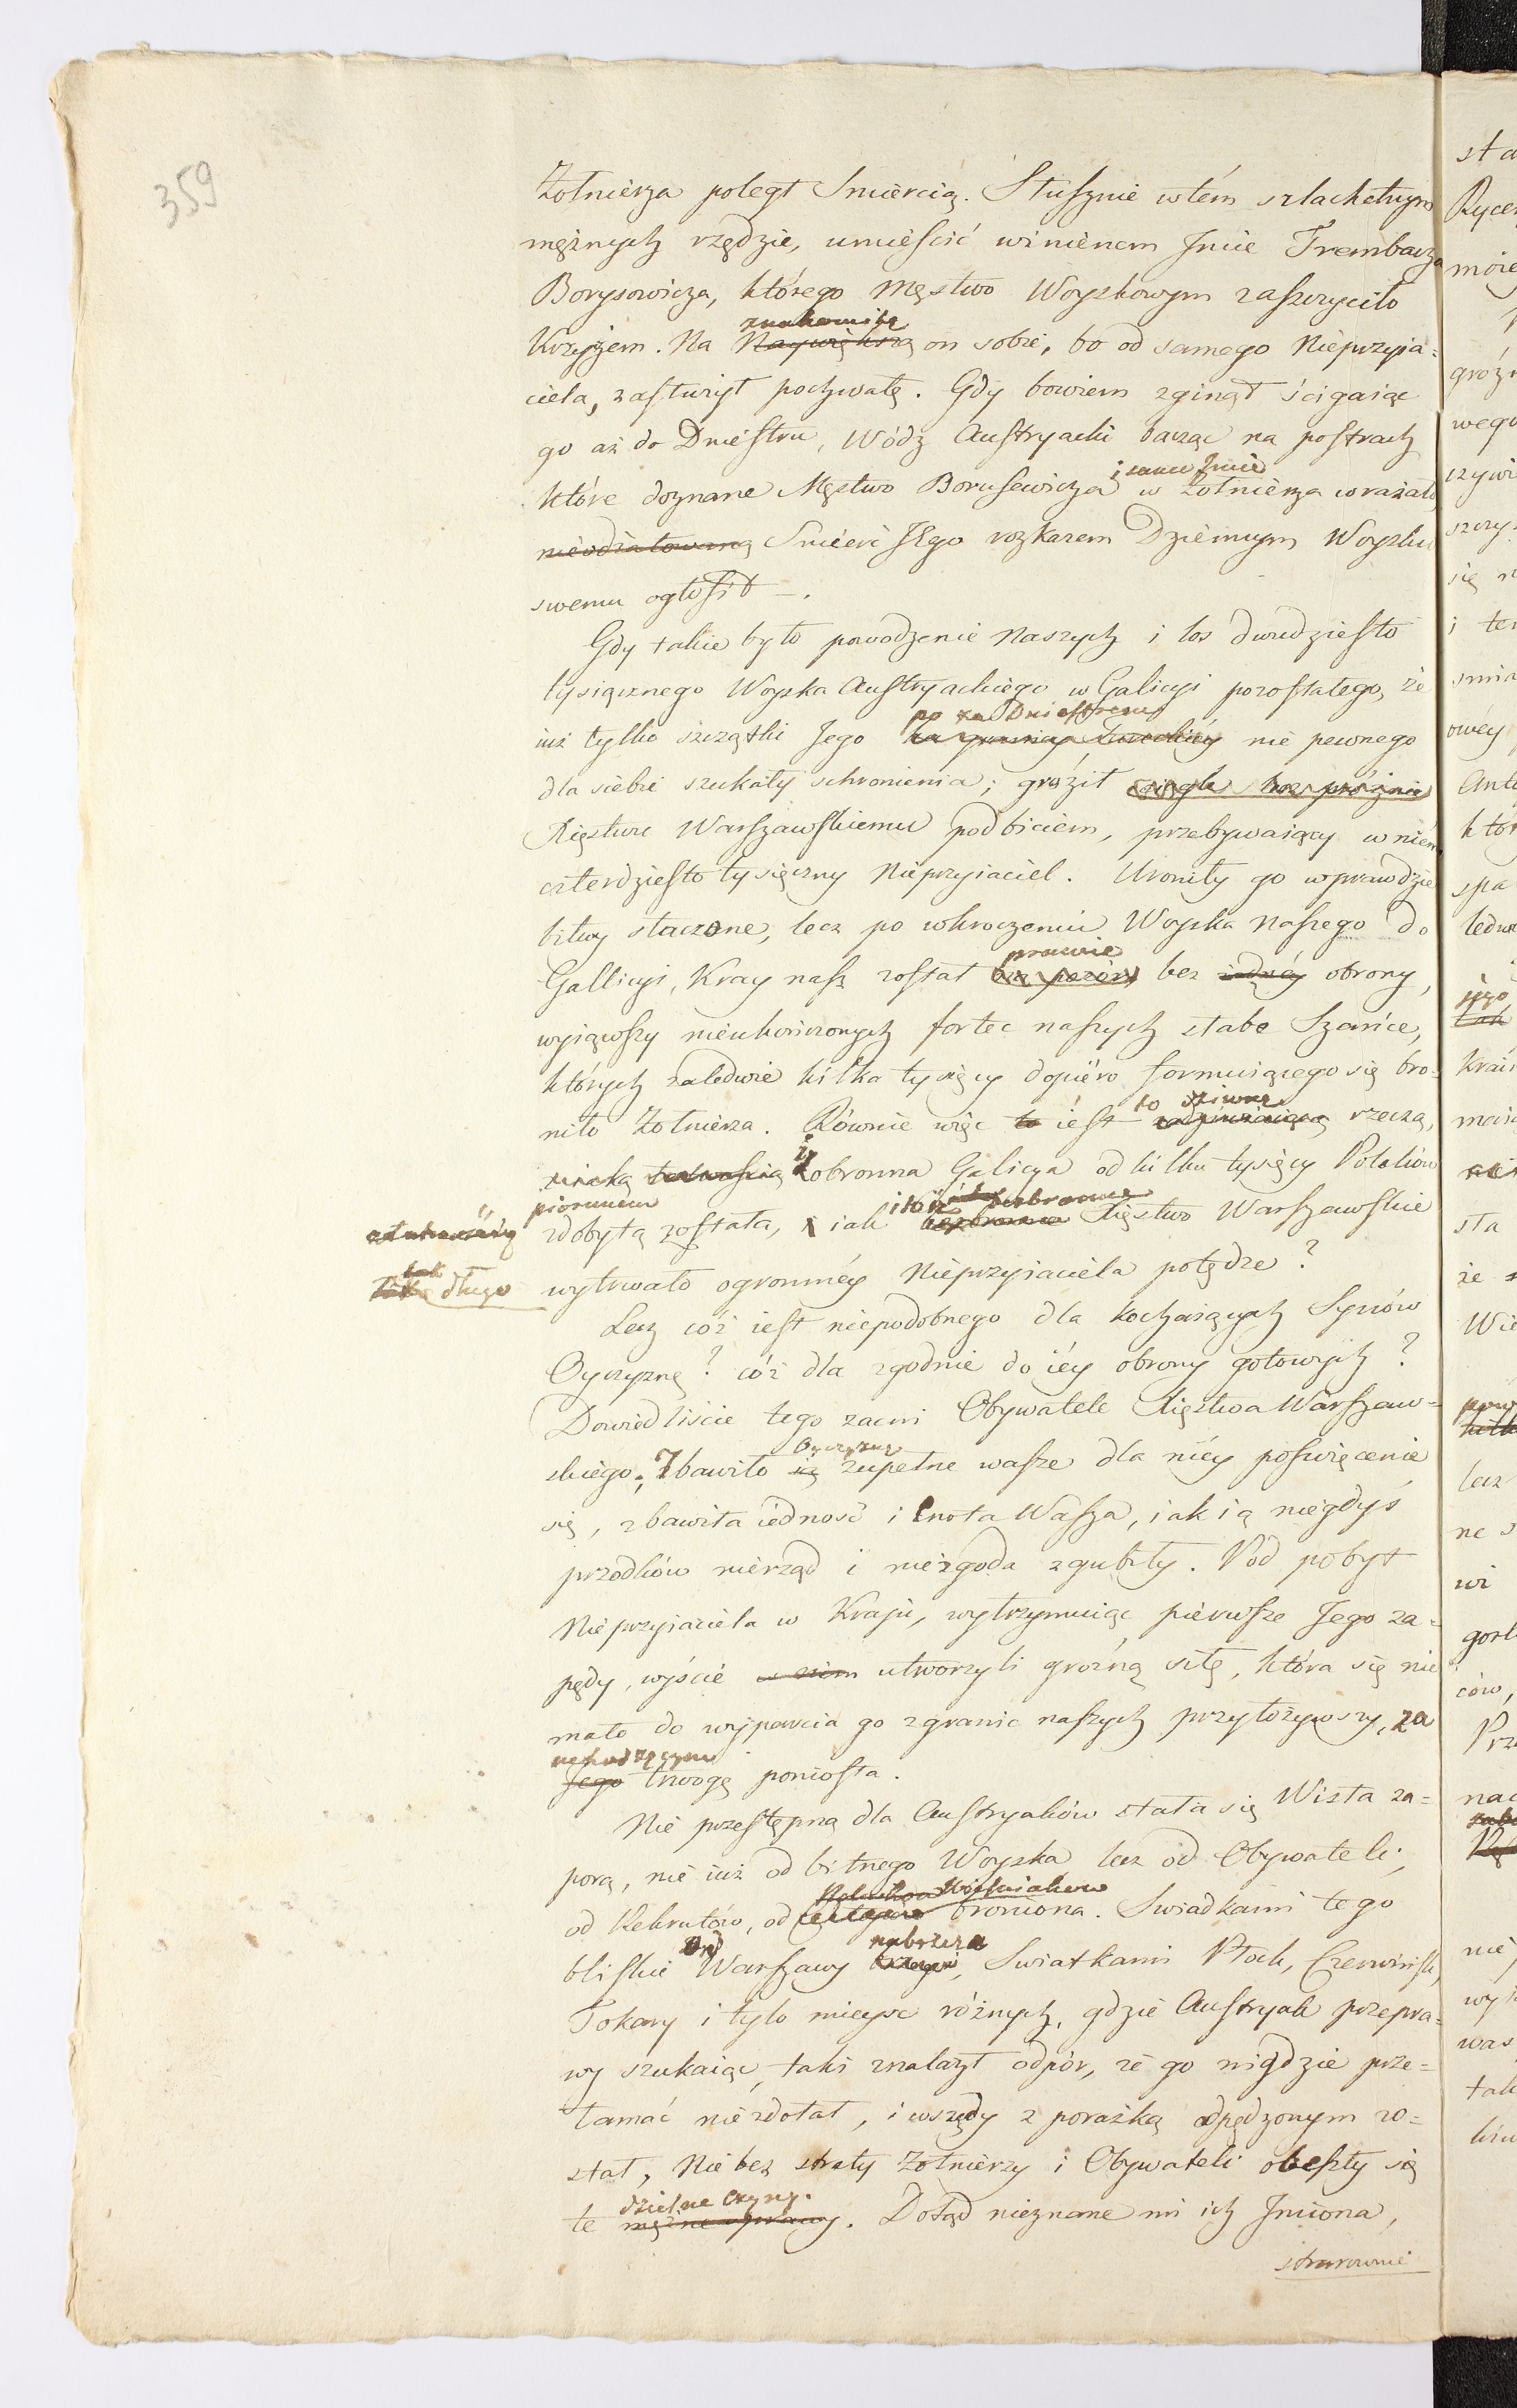 359
Żołnierza poległ Smiercią. Słusznie wtém szlachetnym
mężnych rzędzie, umieścić winienem Jmie Trembacza
Borysowicza, którego Męstwo Woyskowym zaszczyciło
znakomitą
Krzyżem. Na Naywiększą on sobie, bo od samego Nieprzyia=
ciela, zasłużył pochwałę. Gdy bowiem zginął ścigaiąc
go aż do Dniestru, Wódz Austryacki bacząc na postrach
i samo Jmie
które doznane Męstwo Borusewicza w Żołnierza wrażało
Smierć JEgo rozkazem Dziennym Woysku
swemu ogłosił —.
Gdy takie było powodzenie Naszych i los dwudziesto
tysiącznego Woyska Austryackiego w Galicyi pozostałego, że
po za Dniestrem
iuż tylko szczątki Jego za granicą Tureckiéy nie pewnego
dla siebie szukały schronienia; groził ciągle
Xięstwu Warszawskiemu podbiciem, przebywaiący wniém
czterdziesto tysięczny Nieprzyiaciel. Uroniły go wprawdzie
bitwy staczone, lecz po wkroczeniu Woyska Naszego do
prawie
Gallicyi, Kray nasz został bez żadnéy obrony,
wyiąwszy nieukończonych fortec naszych słabe Szańce,
których zaledwie kilka tysięcy dopiéro formuiącego się bro=
to dziwną
niło Żołnierza. Równie więc to iést zadziwiaiącą rzeczą,
iż obronna Galicya od kilku tysięcy Polaków
piorunem
zdobytą została, i iak bezbronne Xięstwo Warszawskie
tak
długo
wytrwało ogromnéy Nieprzyiaciela potędze?
Lecz cóż iest niepodobnego dla kochaiących Synów
Oyczyznę? cóż dla zgodnie do iéy obrony gotowych?
Dowiedliście tego zacni Obywatele Xięstwa Warszaw=
Oyczyznę
skiego. Zbawiło ią zupełne wasze dla niéy poświęcenie
się, zbawiła iedność i Cnota Wasza, iak ią niegdyś
przodków nierząd i niezgoda zgubiły. Pod pobyt
Nieprzyiaciela w Kraju, wytrzymuiąc piérwsze Jego za=
pędy, wyście w nim utworzyli groźną siłę, która się nie
mało do wyparcia go zgranic naszych przyłożywszy, za
uchodzącym
Jego trwogę poniosła.
Nie przestępną dla Austryaków stała się Wisła za=
porą, nie iuż od bitnego Woyska lecz od Obywateli,
Wieśniaków
od Rekrutów, od broniona. Swiadkami tego
nabrzeża
bliskie Od Warszawy brzegi, Swiatkami Płock, Czerwińsk,
Tokary i tylo mieysc różnych, gdzie Austryak przepra=
wy szukaiąc, taki znalazł odpór, że go nigdzie prze=
łamać niezdołał, i wszędy z porażką odpędzonym zo=
stał, Nie bez straty Żołnierzy i Obywateli obeszły się
dzielne Czyny.
te mężne wyprawy. Dotąd nieznane mi ich Jmiona,
starownie